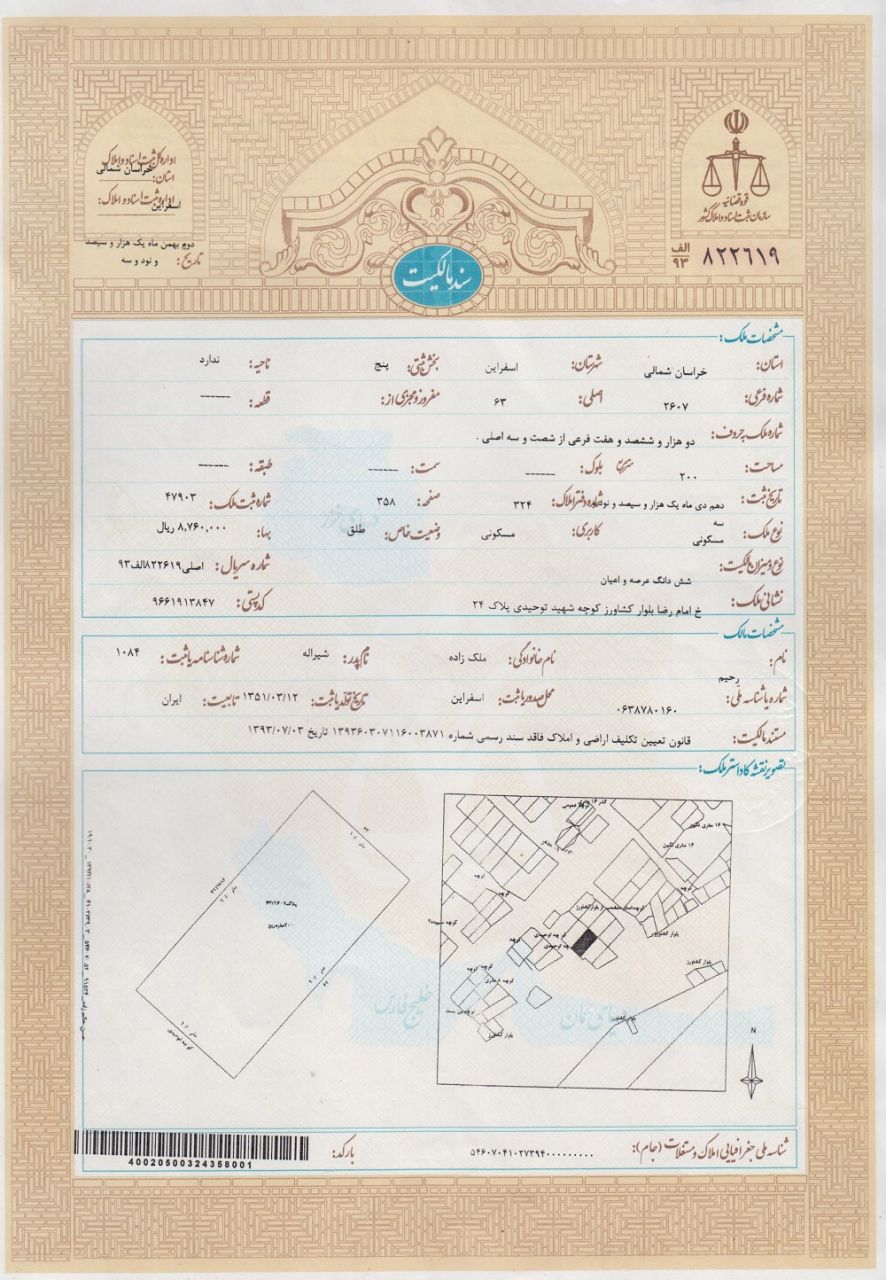 قوه قضائیه
سازمان ثبت اسناد و املاک کشور
الف
۹۳
۸۲۲۶۱۹
اداره کل ثبت اسناد و املاک
استان: خراسان شمالی
اداره ثبت اسناد و املاک:
اسفراین
تاریخ: دوم بهمن ماه یک هزار و سیصد و نود و سه
سند مالکیت
مشخصات ملک:
استان: خراسان شمالی شهرستان: اسفراین بخش ثبتی: پنج ناحیه: ندارد
شماره فرعی: ۲۶۰۷ اصلی: ۶۳ مفروز و مجزی از: قطعه: ------
شماره ملک به حروف: دو هزار و ششصد و هفت فرعی از شصت و سه اصلی .
مساحت: ۲۰۰ مترمربع بلوک: ------ سمت: ------ طبقه: ------
تاریخ ثبت: دهم دی ماه یک هزار و سیصد و نود و سه شماره دفتر املاک: ۳۲۴ صفحه: ۳۵۸ شماره ثبت ملک: ۴۷۹۰۳
نوع ملک: مسکونی کاربری: مسکونی وضعیت خاص: طلق بها: ۸,۷۶۰,۰۰۰ ریال
نوع و میزان مالکیت: شش دانگ عرصه و اعیان شماره سریال: اصلی۸۲۲۶۱۹الف۹۳
نشانی ملک: خ امام رضا بلوار کشاورز کوچه شهید توحیدی پلاک ۲۴ کد پستی: ۹۶۶۱۹۱۳۸۴۷
مشخصات مالک
نام: رحیم نام خانوادگی: ملک زاده نام پدر: شیراله شماره شناسنامه یا ثبت: ۱۰۸۴
شماره یا شناسه ملی: ۰۶۳۸۷۸۰۱۶۰ محل صدور یا ثبت: اسفراین تاریخ تولد یا ثبت: ۱۳۵۱/۰۳/۱۲ تابعیت: ایران
مستند مالکیت: قانون تعیین تکلیف اراضی و املاک فاقد سند رسمی شماره ۱۳۹۳۶۰۳۰۷۱۱۶۰۰۳۸۷۱ تاریخ ۱۳۹۳/۰۷/۰۳
تصویر نقشه کاداستر ملک:
کوچه توحیدی
کوچه
کوچه
کوچه
کوچه توحیدی
بلوار کشاورز
بلوار کشاورز
بلوار کشاورز
بلوار کشاورز
۱۶ متری نگین
۱۶ متری نگین
N
دریای خزر
خلیج فارس
دریای عمان
شناسه ملی جغرافیایی املاک و مستغلات (جام): ۵۴۶۰۷۰۴۱۰۲۷۳۹۴۰۰۰۰۰۰۰۰۰
بارکد:
40020500324358001